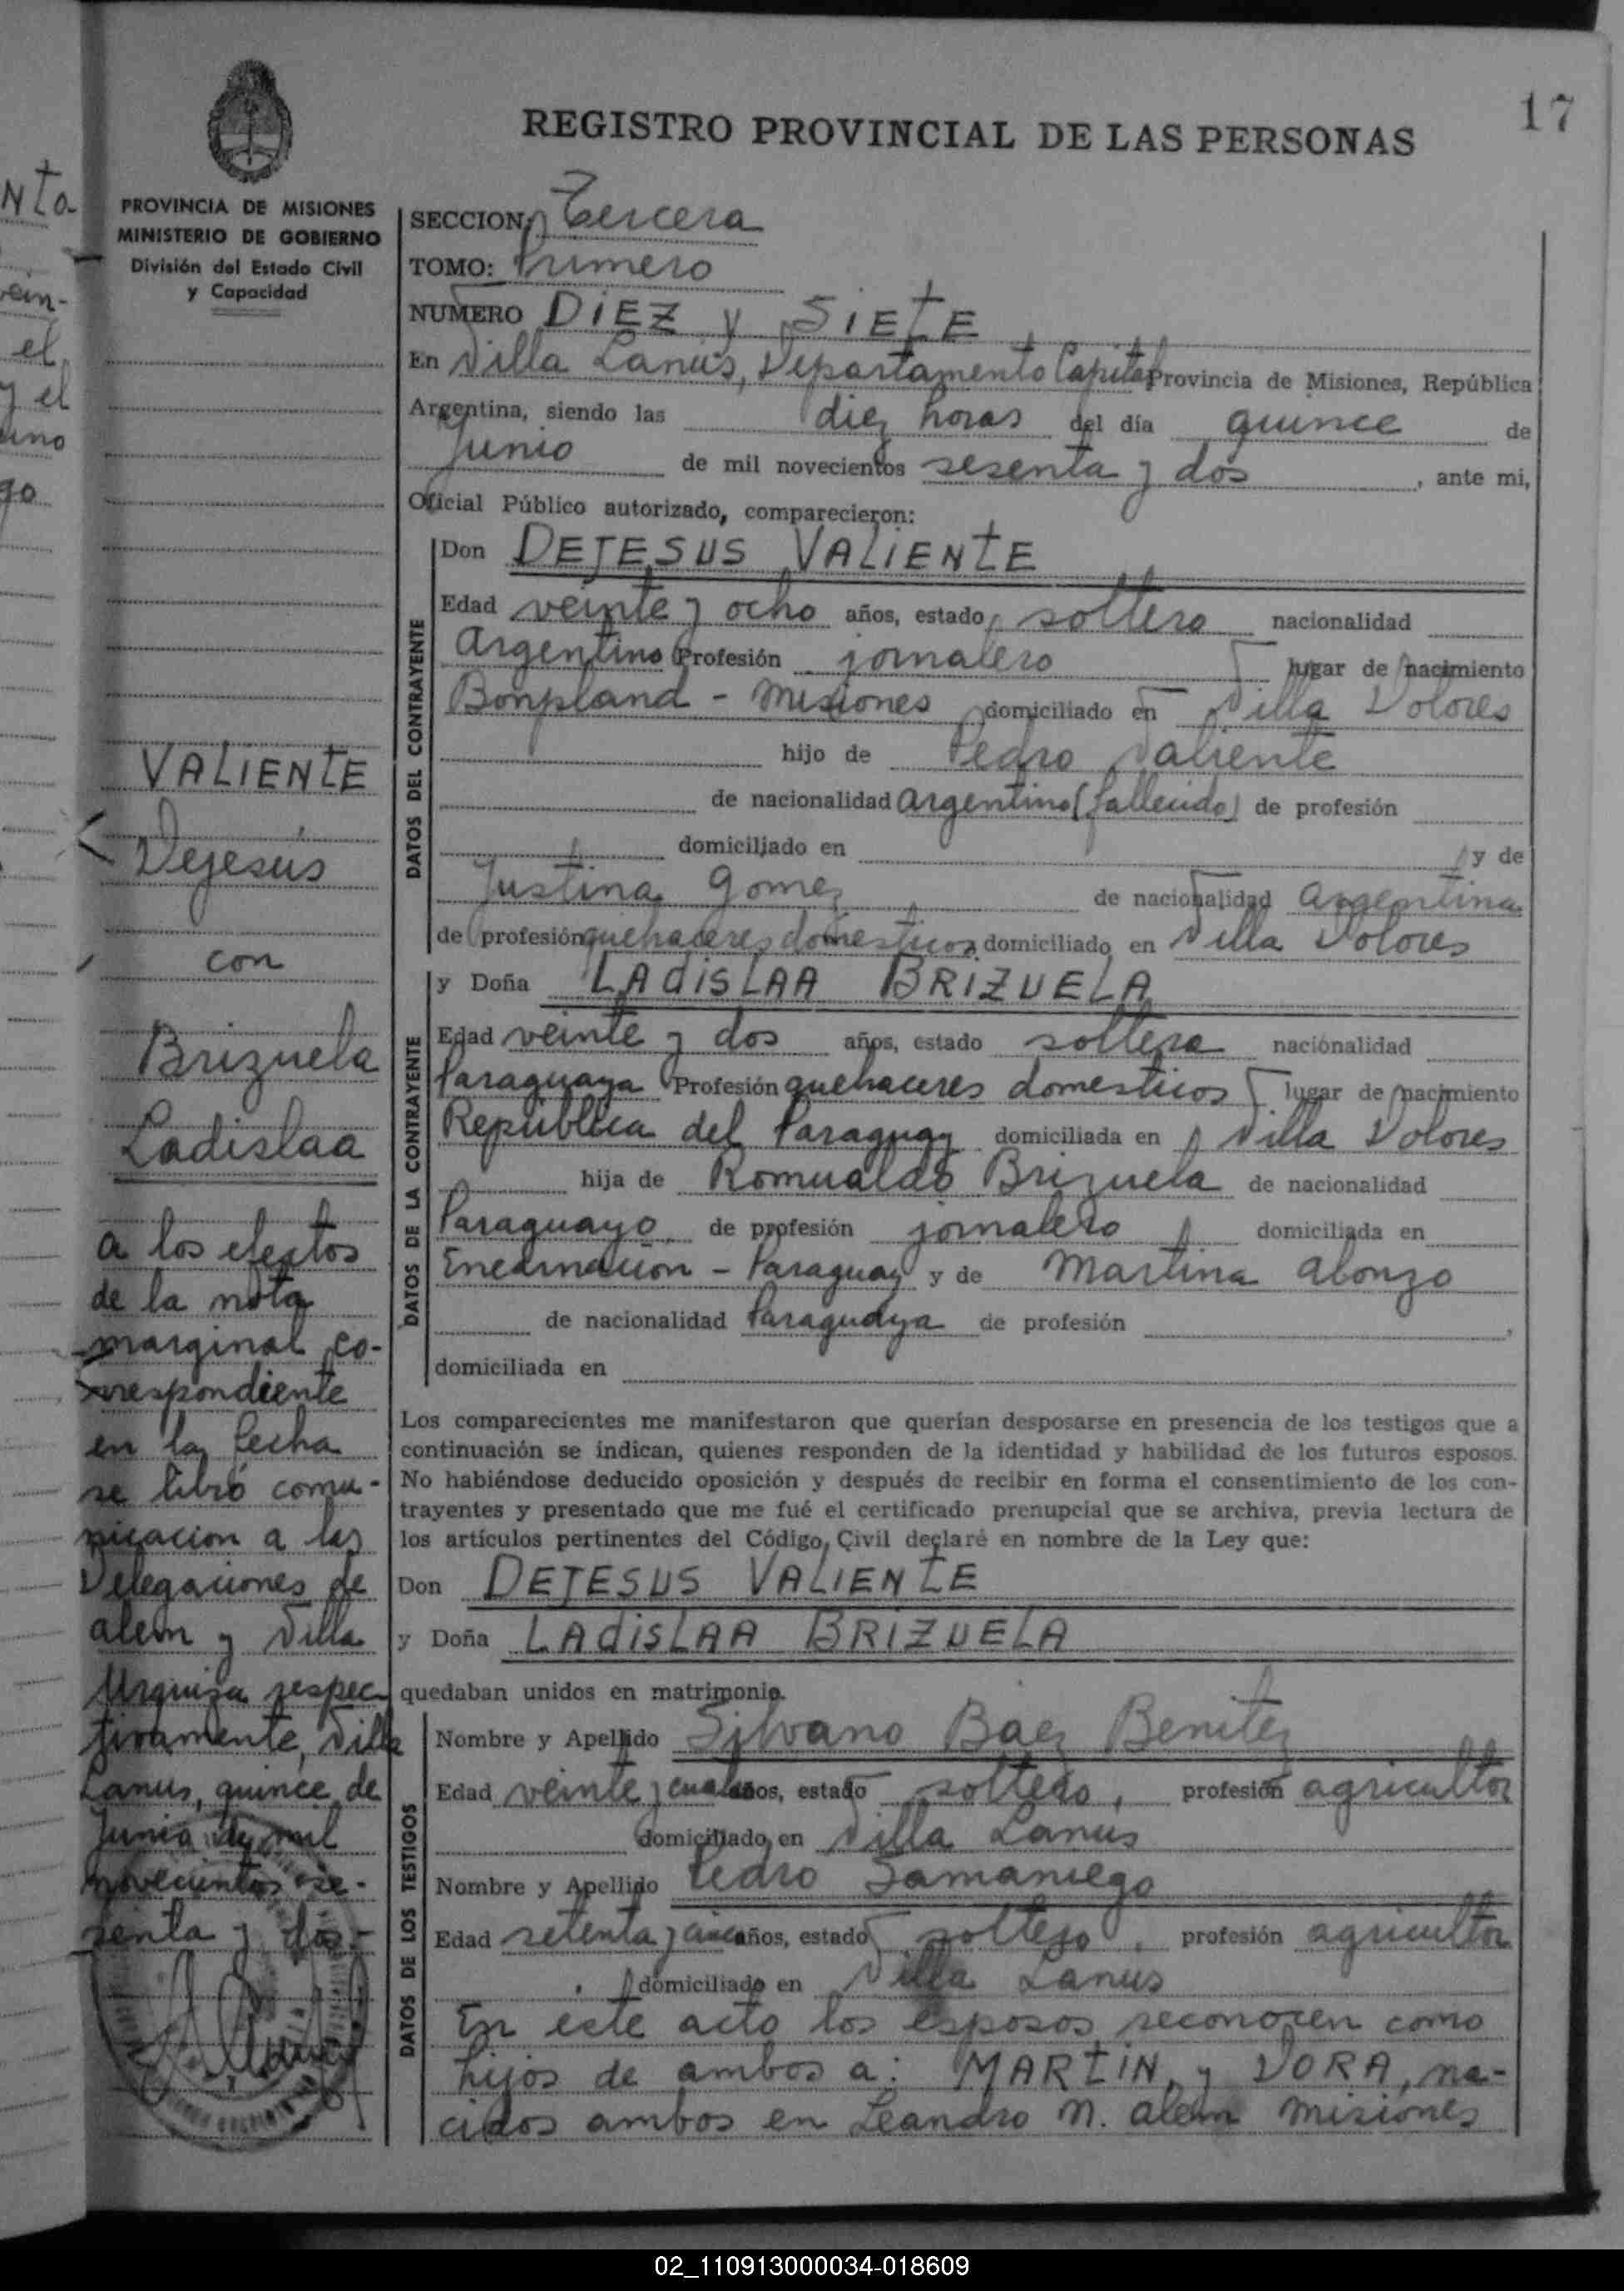 17
REGISTRO PROVINCIAL DE LAS PERSONAS
PROVINCIA DE MISIONES
MINISTERIO DE GOBIERNO
División del Estado Civil
y Capacidad
SECCION: Tercera
TOMO: Primero
NUMERO DIEZ y SIETE
En Villa Lanús, Departamento Capital Provincia de Misiones, República
Argentina, siendo las diez horas del día quince de
Junio de mil novecientos sesenta y dos, ante mi,
Oficial Público autorizado, comparecieron:
DATOS DEL CONTRAYENTE
Don DEJESUS VALIENTE
Edad veinte y ocho años, estado soltero nacionalidad
Argentino Profesión jornalero lugar de nacimiento
Bonpland - Misiones domiciliado en Villa Dolores
hijo de Pedro Valiente
de nacionalidad Argentino (fallecido) de profesión
domiciliado en y de
Justina Gomez de nacionalidad Argentina
de profesión quehaceres domesticos domiciliado en Villa Dolores
DATOS DE LA CONTRAYENTE
y Doña LADISLAA BRIZUELA
Edad veinte y dos años, estado soltera nacionalidad
Paraguaya Profesión quehaceres domesticos lugar de nacimiento
República del Paraguay domiciliada en Villa Dolores
hija de Romualdo Brizuela de nacionalidad
Paraguayo de profesión jornalero domiciliada en
Encarnacion - Paraguay y de Martina Alonzo
de nacionalidad Paraguaya de profesión
domiciliada en
Los comparecientes me manifestaron que querían desposarse en presencia de los testigos que a
continuación se indican, quienes responden de la identidad y habilidad de los futuros esposos.
No habiéndose deducido oposición y después de recibir en forma el consentimiento de los con-
trayentes y presentado que me fué el certificado prenupcial que se archiva, previa lectura de
los artículos pertinentes del Código Civil declaré en nombre de la Ley que:
Don DEJESUS VALIENTE
y Doña LADISLAA BRIZUELA
quedaban unidos en matrimonio.
DATOS DE LOS TESTIGOS
Nombre y Apellido Silvano Baez Benitez
Edad veinte y cuatro años, estado soltero, profesión agricultor
domiciliado en Villa Lanus
Nombre y Apellido Pedro Samaniego
Edad setenta y años, estado soltero, profesión agricultor
domiciliado en Villa Lanus
En este acto los esposos reconocen como
hijos de ambos a: MARTIN y DORA, na-
cidos ambos en Leandro N. Alem Misiones
VALIENTE
Dejesús
con
Brizuela
Ladislaa
a los efectos
de la nota
marginal co-
rrespondiente
en la fecha
se libró comu-
nicacion a las
Delegaciones de
Alem y Villa
Urquiza respec
tivamente, Villa
Lanus, quince de
Junio de mil
novecientos se-
senta y dos.-
nta
vein-
el
y el
uno
go
02_110913000034-018609